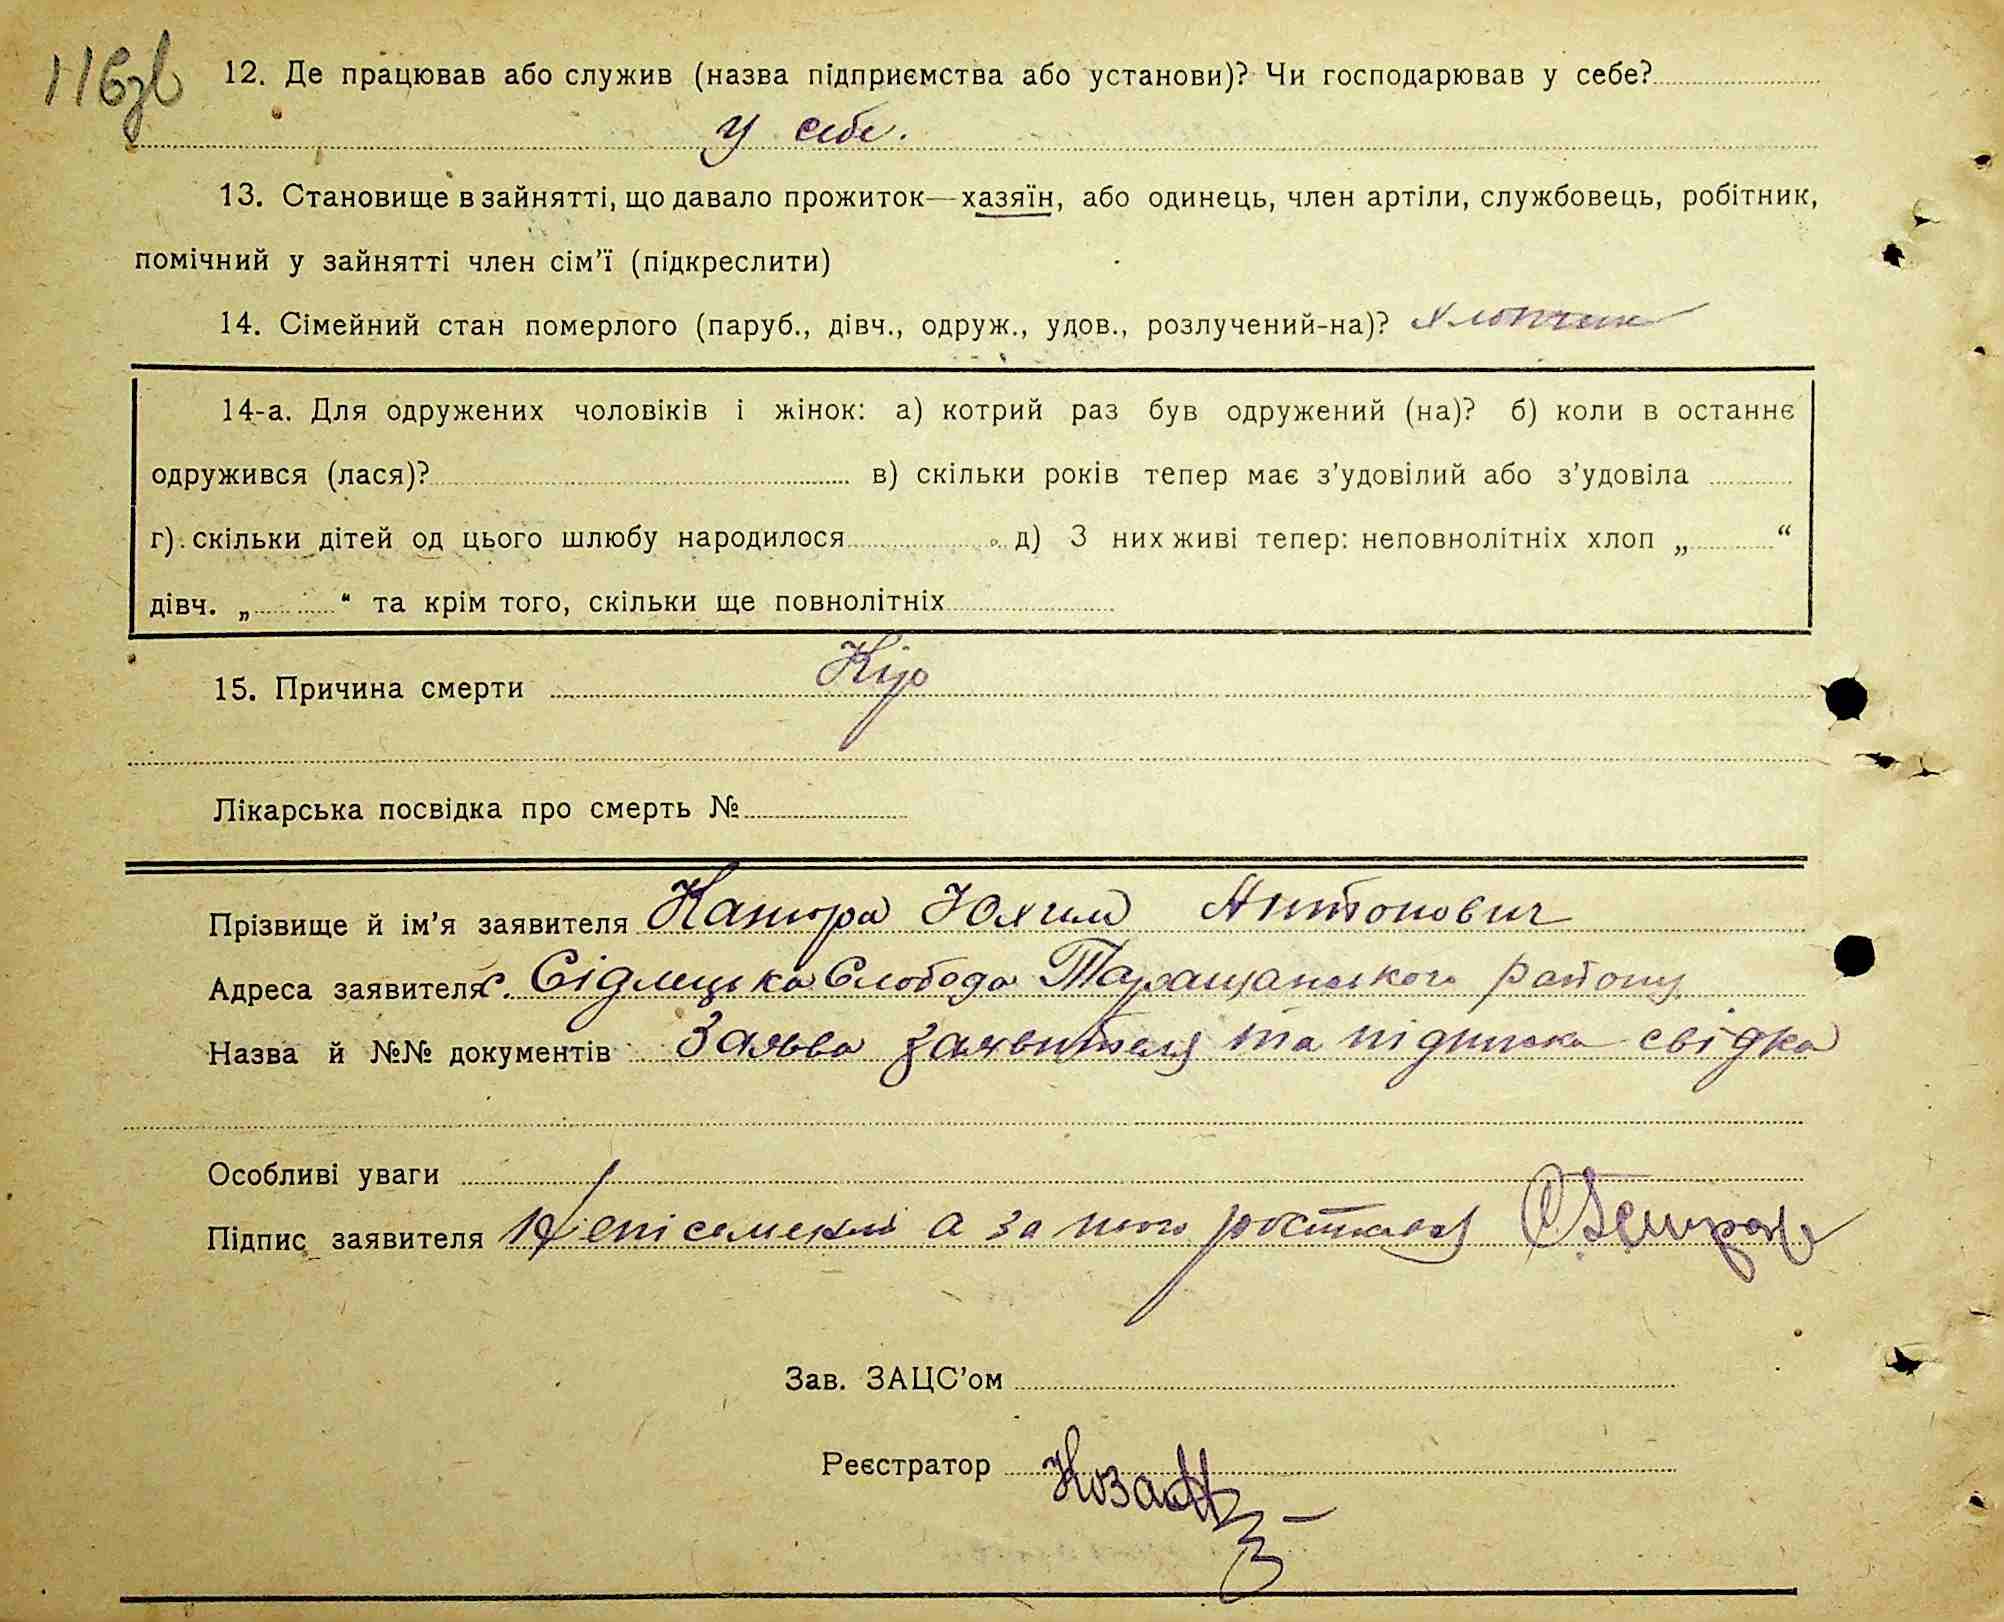 116зв
12. Де працював або служив (назва підприємства або установи)? Чи господарював у себе?
у себе.
13. Становище в зайнятті, що давало прожиток—хазяїн, або одинець, член артіли, службовець, робітник,
помічний у зайнятті член сім’ї (підкреслити)
14. Сімейний стан померлого (паруб., дівч., одруж., удов., розлучений-на)? Хлопчик
14-а. Для одружених чоловіків і жінок: а) котрий раз був одружений (на)? б) коли в останнє
одружився (лася)? в) скільки років тепер має з’удовілий або з’удовіла
г) скільки дітей од цього шлюбу народилося д) З них живі тепер: неповнолітніх хлоп „ “
дівч. „ “ та крім того, скільки ще повнолітніх
15. Причина смерти Кір
Лікарська посвідка про смерть №
Прізвище й ім’я заявителя Юхим Антонович
Адреса заявителя с. Сідлецька Слобода Таращанського району
Назва й №№ документів Заява заявителя та підписка свідка
Особливі уваги
Підпис заявителя Неписьмений а за нього
Зав. ЗАЦС’ом
Реєстратор